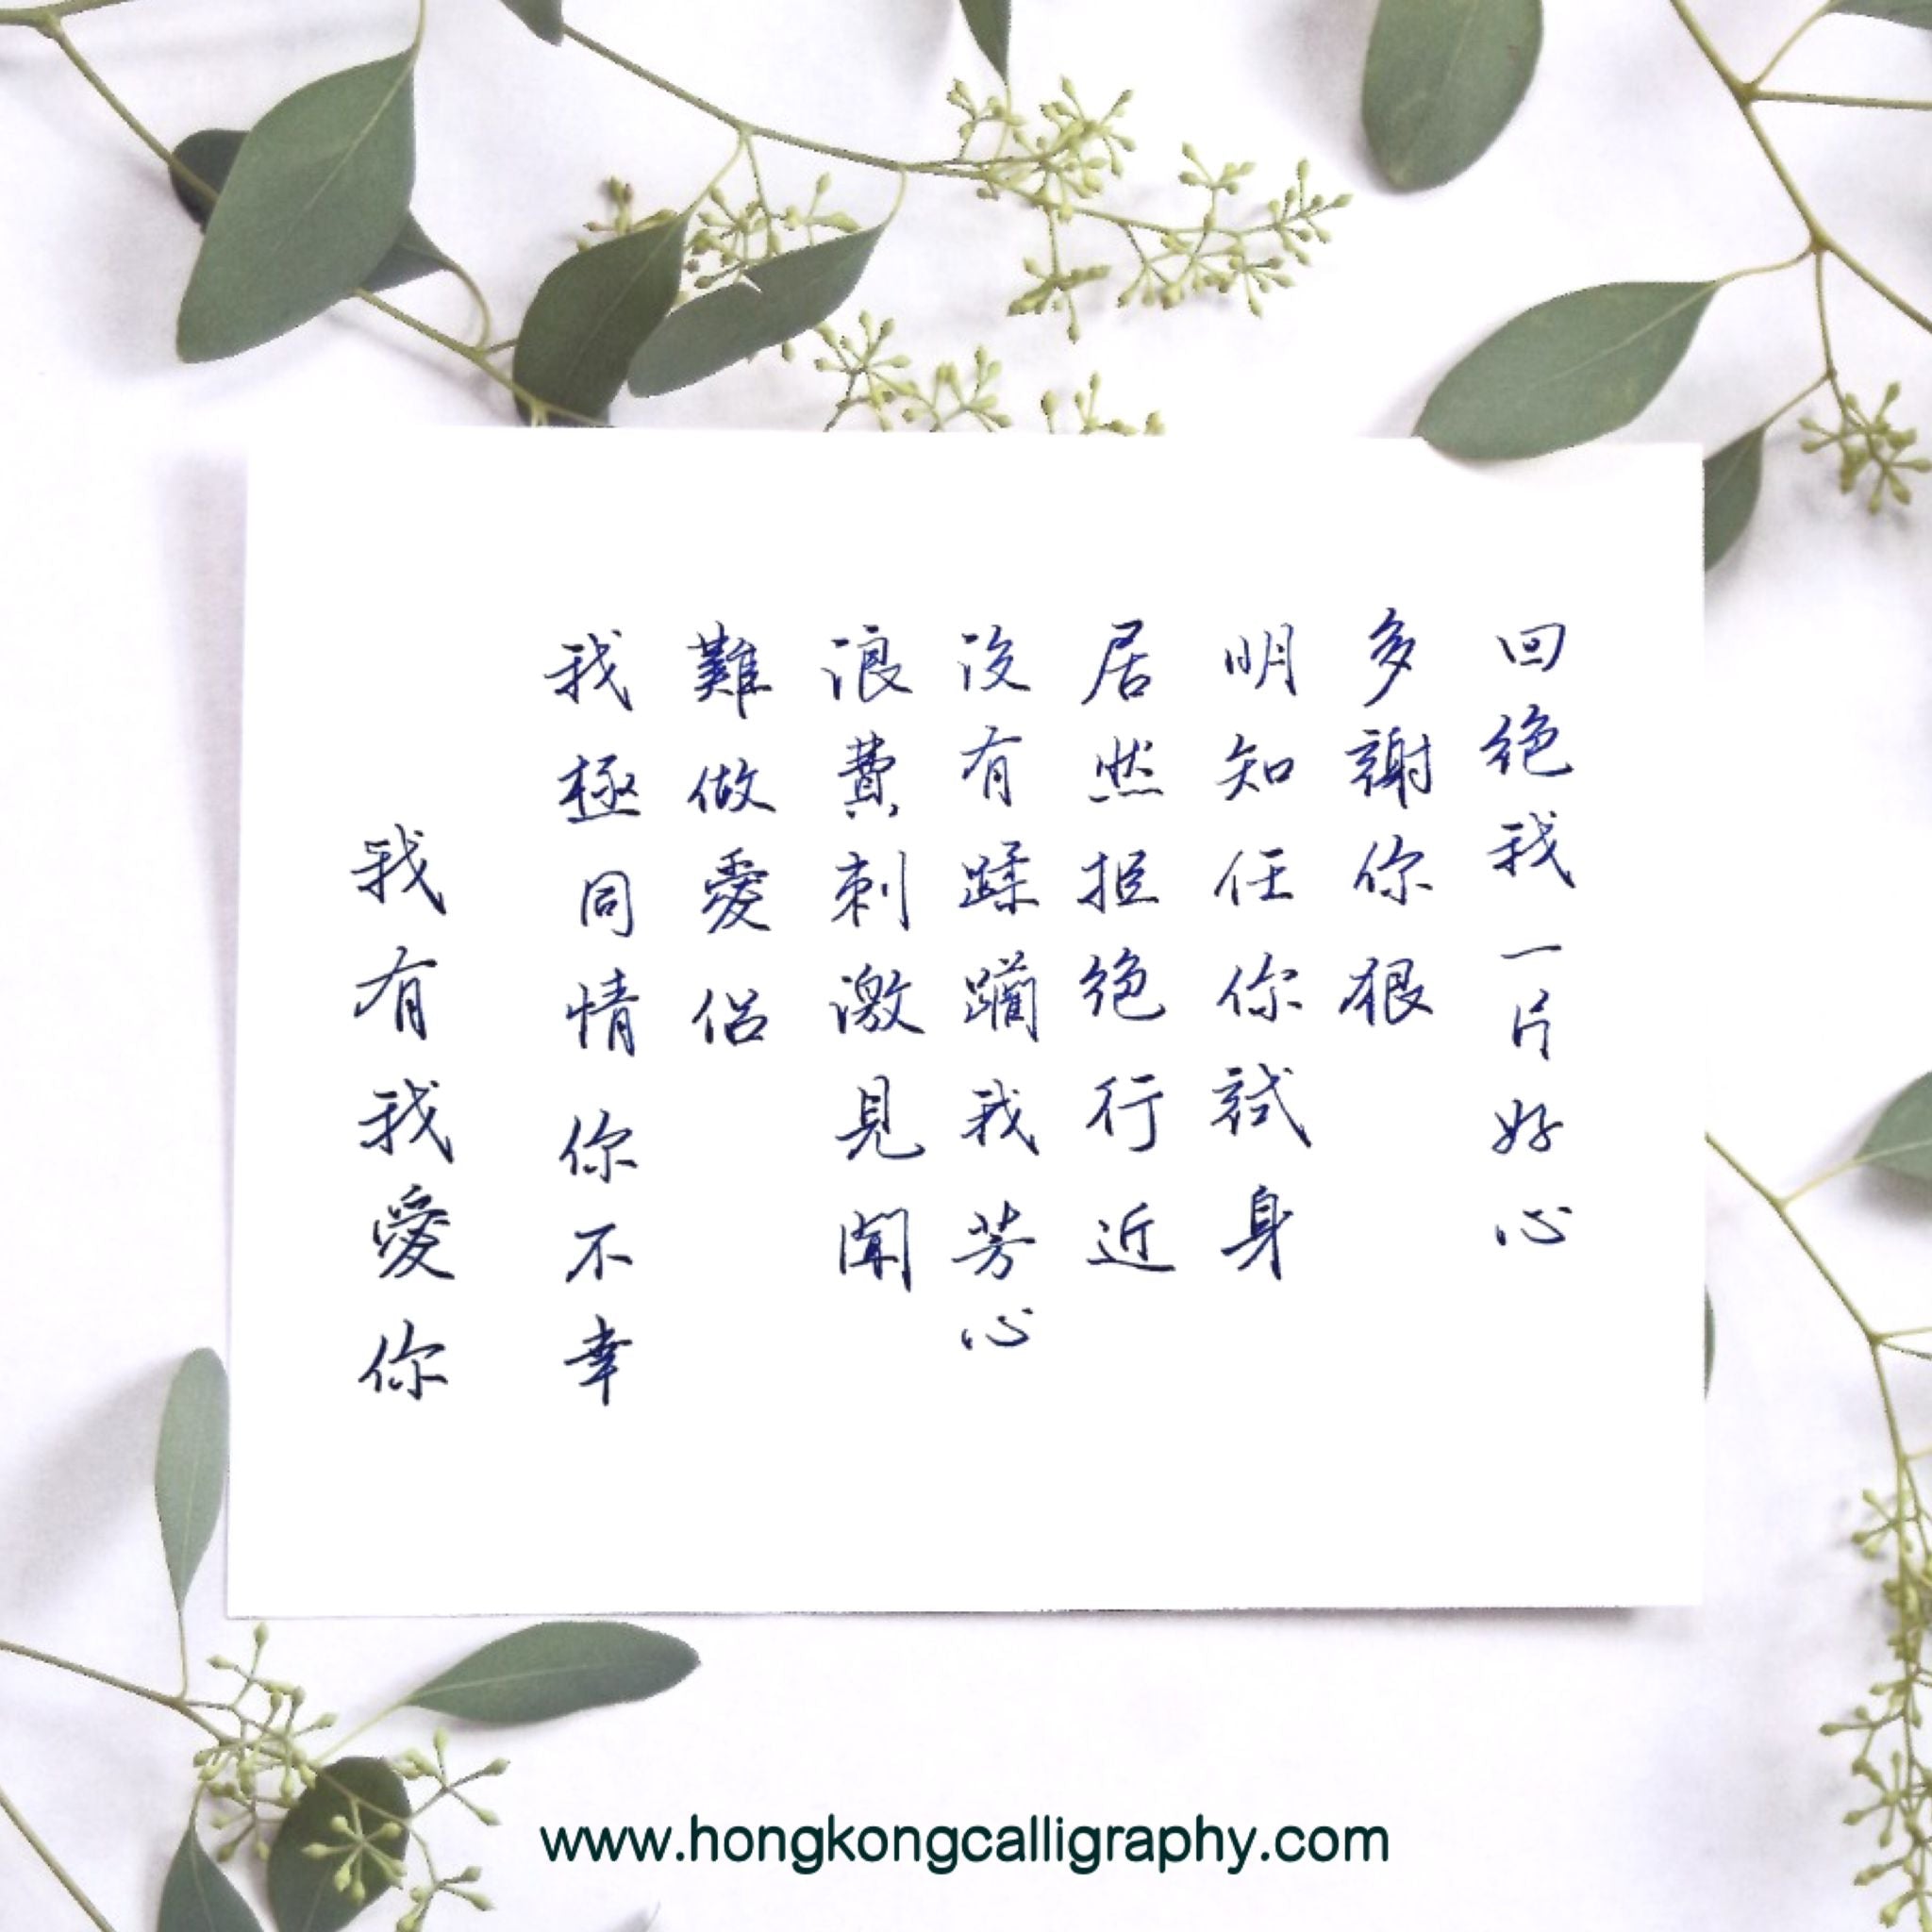 回絕我一片好心
多謝你狠
明知任你試身
居然拒絕行近
沒有蹂躪我芳心
浪費刺激見聞
難做愛侶
我極同情你不幸
我有我愛你
www.hongkongcalligraphy.com